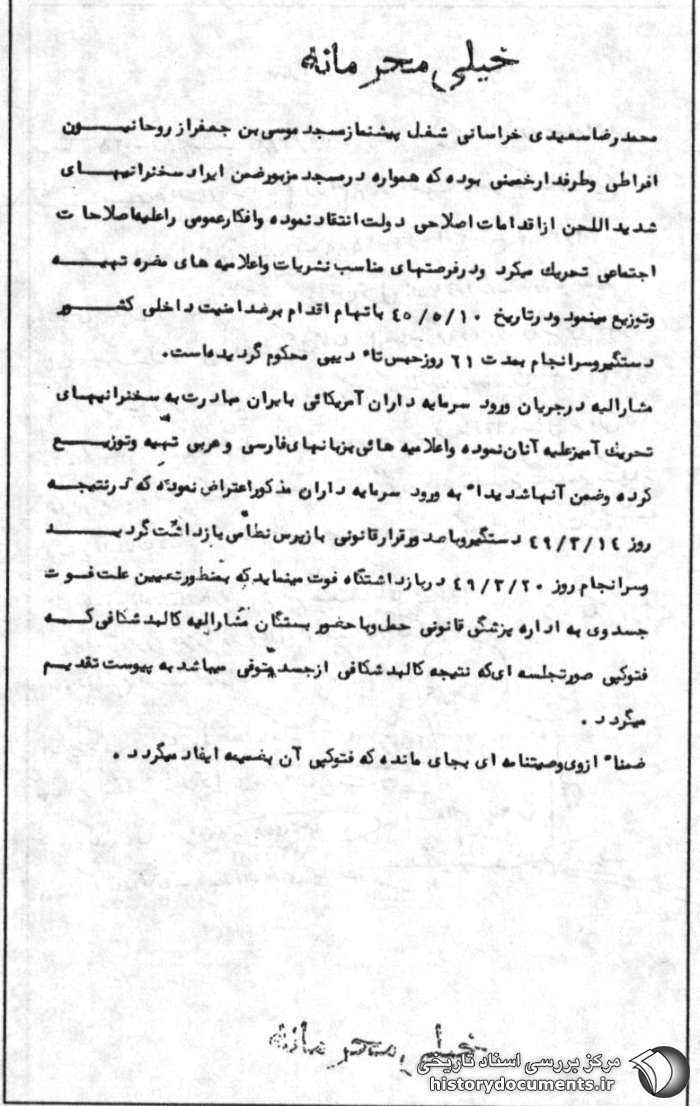 خیلی محرمانه
محمدرضا سعیدی خراسانی شغل پیشنماز مسجد موسی بن جعفر از روحانیون
افراطی وطرفدار خمینی بوده که همواره در مسجد مزبور ضمن ایراد سخنرانیهای
شدید اللحن از اقدامات اصلاحی دولت انتقاد نموده وافکار عمومی را علیه اصلاحات
اجتماعی تحریك میکرد ودر فرصتهای مناسب نشریات واعلامیه های مضره تهیه
وتوزیع مینمود ودر تاریخ ۴۵/۵/۱۰ باتهام اقدام بر ضد امنیت داخلی کشور
دستگیر وسرانجام بمدت ۶۱ روز حبس تأدیبی محکوم گردیده است.
مشارالیه در جریان ورود سرمایه داران آمریکائی بایران مبادرت به سخنرانیهای
تحریك آمیز علیه آنان نموده واعلامیه هائی بزبانهای فارسی و عربی تهیه وتوزیع
کرده وضمن آنها شدیداً به ورود سرمایه داران مذکور اعتراض نموده که در نتیجه
روز ۴۹/۳/۱۴ دستگیر وبا صدور قرار قانونی بازپرس نظامی بازداشت گردید
وسرانجام روز ۴۹/۳/۲۰ در بازداشتگاه فوت مینماید که بمنظور تعیین علت فوت
جسد وی به اداره پزشگی قانونی حمل وبا حضور بستگان مشارالیه کالبد شکافی که
فتوکپی صورتجلسه ای که نتیجه کالبد شکافی از جسد متوفی میباشد به پیوست تقدیم
میگردد.
ضمناً از وی وصیتنامه ای بجای مانده که فتوکپی آن بضمیمه ایفاد میگردد.
خیلی محرمانه
مرکز بررسی اسناد تاریخی
historydocuments.ir